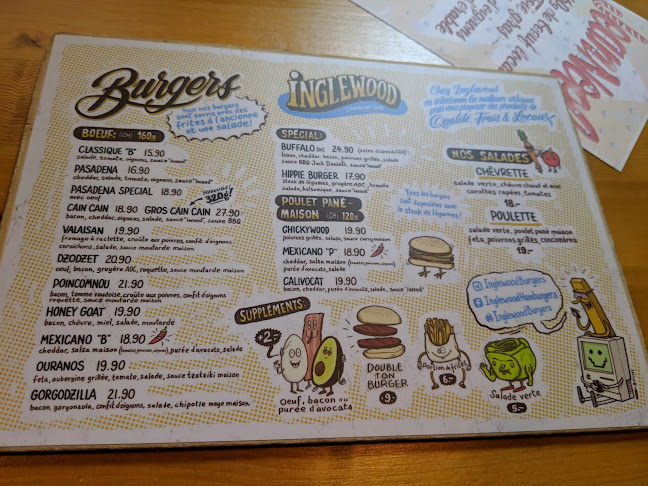 Burgers
Tous nos burgers
sont servis avec des
frites à l'ancienne
et une salade!
BOEUF: (CH) 160g
CLASSIQUE "B" 15.90
salade, tomate, oignons, sauce "iwood"
PASADENA 16.90
cheddar, salade, tomate, oignons, sauce "iwood"
PASADENA SPECIAL 18.90
avec oeuf
320g!
CAIN CAIN 18.90 GROS CAIN CAIN 27.90
bacon, cheddar, oignons, salade, sauce "iwood", sauce BBQ
VALAISAN 19.90
fromage à raclette, croûte aux poivres, confit d'oignons
cornichons, salade, sauce moutarde maison
DZODZET 20.90
oeuf, bacon, gruyère AOC, roquette, sauce moutarde maison
POINCOMNOU 21.90
bacon, tomme vaudoise, croûte aux poivres, confit d'oignons
roquette, sauce moutarde maison
HONEY GOAT 19.90
bacon, chèvre, miel, salade, moutarde
MEXICANO "B" 18.90
cheddar, salsa maison, purée d'avocats, salade
OURANOS 19.90
feta, aubergine grillée, tomate, salade, sauce tzatziki maison
GORGODZILLA 21.90
bacon, gorgonzola, confit d'oignons, salade, chipotle mayo maison
INGLEWOOD
SPÉCIAL:
BUFFALO 24.90
bacon, cheddar, bacon, poivrons grillés, salade
sauce BBQ Jack Daniels, sauce "iwood"
HIPPIE BURGER 17.90
steak de légumes, gruyère AOC, tomate
salade, balsamique, sauce "iwood"
POULET PANÉ-
MAISON (CH) 120g
CHICKYWOOD 19.90
poivrons grillés, salade, sauce curry maison
MEXICANO "P" 18.90
cheddar, salsa maison
purée d'avocats, salade
CALIVOCAT 19.90
bacon, cheddar, purée d'avocats, salade, sauce "iwood"
SUPPLÉMENTS:
+2.-
Oeuf, bacon ou
purée d'avocats
DOUBLE
TON
BURGER
9.-
portion de frites
6.-
Salade verte
5.-
Chez Inglewood
on sélectionne les meilleurs artisans
pour vous proposer des produits de
Qualité, Frais & Locaux
Tous les burgers
sont disponibles avec
le steak de légumes!
NOS SALADES
CHÉVRETTE
salade verte, chèvre chaud et miel
carottes rapées, tomates
18.-
POULETTE
salade verte, poulet pané maison
feta, poivrons grillés, concombres
19.-
InglewoodBurgers
InglewoodHamburgers
#InglewoodBurger